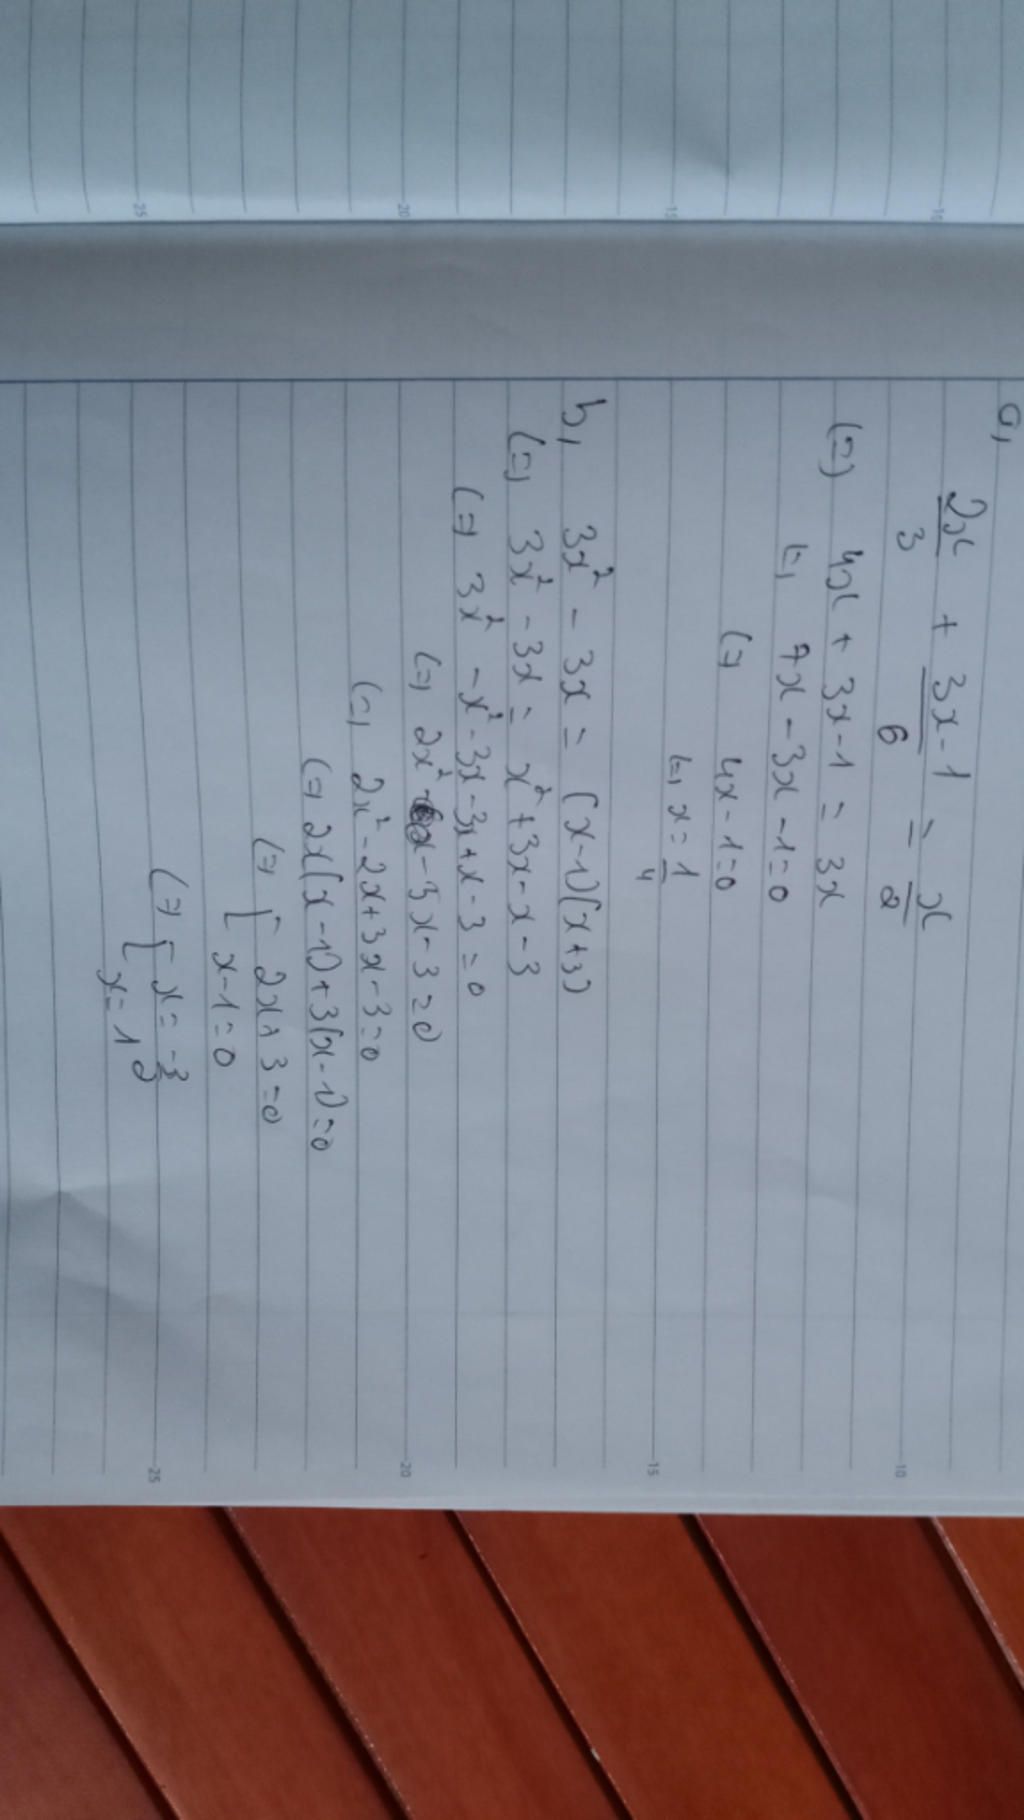 a,
2x/3 + 3x-1/6 = x/2
(=) 4x + 3x-1 = 3x
(=) 7x - 3x - 1 = 0
(=) 4x - 1 = 0
(=) x = 1/4
b, 3x² - 3x = (x-1)(x+3)
(=) 3x² - 3x = x² + 3x - x - 3
(=) 3x² - x² - 3x - 3x + x - 3 = 0
(=) 2x² - x - 3x - 3 = 0
(=) 2x² - 2x + 3x - 3 = 0
(=) 2x(x-1) + 3(x-1) = 0
(=) [ 2x + 3 = 0
x - 1 = 0
(=) [ x = -3/2
x = 1
10
15
20
25
10
15
20
25